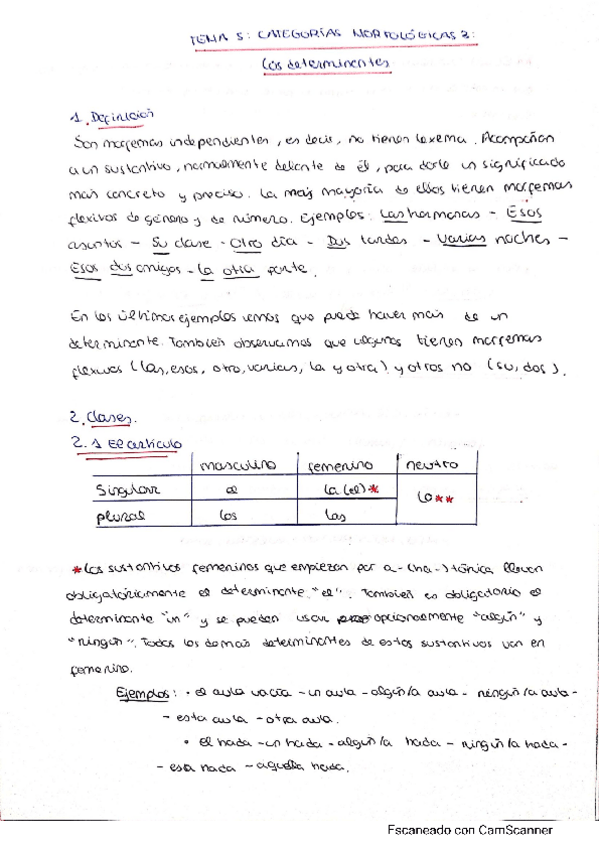 TEMA 5: CATEGORÍAS MORFOLÓGICAS 2:
Los determinantes
1. Definición
Son morfemas independientes, es decir, no tienen lexema. Acompañan
a un sustantivo, normalmente delante de él, para darle un significado
más concreto y preciso. La más mayoría de ellos tienen morfemas
flexivos de género y de número. Ejemplos: Las hermanas - Esos
asuntos - Su clase - Otro día - Dos tardes - Varias noches -
Esos dos amigos - La otra parte.
En los últimos ejemplos vemos que puede haver más de un
determinante. También observamos que algunos tienen morfemas
flexivos (las, esos, otro, varias, la y otra) y otros no (su, dos).
2. Clases.
2.1 El artículo
masculino femenino neutro
Singular el la (el)* lo**
plural los las
*Los sustantivos femeninos que empiezan por a- (ha-) tónica llevan
obligatoriamente el determinante "el". También es obligatorio el
determinante "un" y se pueden usar opcionalmente "algún" y
"ningún". Todos los demás determinantes de estos sustantivos van en
femenino.
Ejemplos: · el aula vacía - un aula - algún/a aula - ningún/a aula -
- esta aula - otra aula.
· el hada - un hada - algún/a hada - ningún/a hada -
- esa hada - aquella hada.
Escaneado con CamScanner